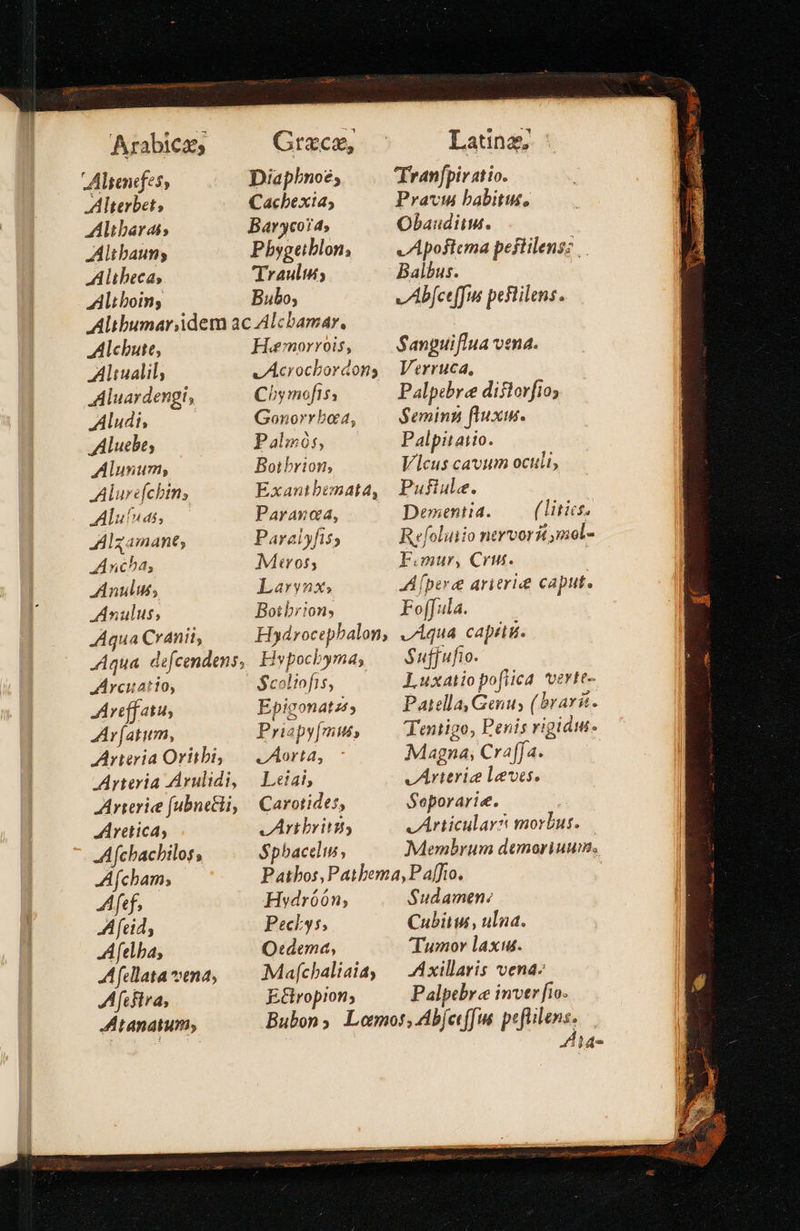 Arabicæ, Græcæ, Latinæ,
Altenefes, Diaphnoé, Tranſpiratio.
Alterbet, Cachexia, Pravus habitus.
Altharas, Barycoïa, Obauditus.
Althaun, Phygethlon, Apoſtema peſtilens:
Altheca, Traulus, Balbus.
Althoin, Bubo, Abſceſſus peſtilens.
Althumar, idem ac Alchamar.
Alchute, Hæmorrois, Sanguiflua vena.
Altualil, Acrochordon, Verruca.
Aluardengi, Chymoſis, Palpebræ diſtorſio,
Aludi, Gonorrhœa, Seminũ fluxus.
Aluebe, Palmòs, Palpitatio.
Alunum, Bothrion, Vlcus cavum oculi,
Alureſchin, Exanthemata, Puſtulæ.
Aluſuas, Paranœa, Dementia. (litics.
Alzamane, Paralyſis, Reſolutio nervorũ, mol-
Ancha, Meros, Femur, Crus.
Anulus, Larynx, Aſperæ arieriæ caput.
Anulus, Bothrion, Foſſula.
Aqua Cranii, Hydrocephalon, Aqua capitũ.
Aqua deſcendens, Hypochyma, Suffuſio.
Arcuatio, Scolioſis, Luxatio poſtica verte-
Areffatu, Epigonatis, Patella, Genu, (brarũ.
Arſatum, Priapyſmus, Tentigo, Penis rigidus.
Arteria Orithi, Aorta, Magna, Craſſa.
Arteria Arulidi, Leiai, Arteriæ læves.
Arteriæ ſubnecti, Carotides, Soporariæ.
Aretica, Arthritis, Articularis morbus.
Aſchachilos, Sphacelus, Membrum demortuum.
Aſcham, Pathos, Pathema, Paſſio.
Aſef, Hydróòn, Sudamen:
Aſeid, Pechys, Cubitus, ulna.
Aſelba, Oedema, Tumor laxus.
Aſellata vena, Maſchaliaia, Axillaris vena:
Aſeſtra, Ectropion, Palpebræ inverſio.
Atanatum, Bubon, Lœmos, Abſceſſus peſtilens.
Ata-